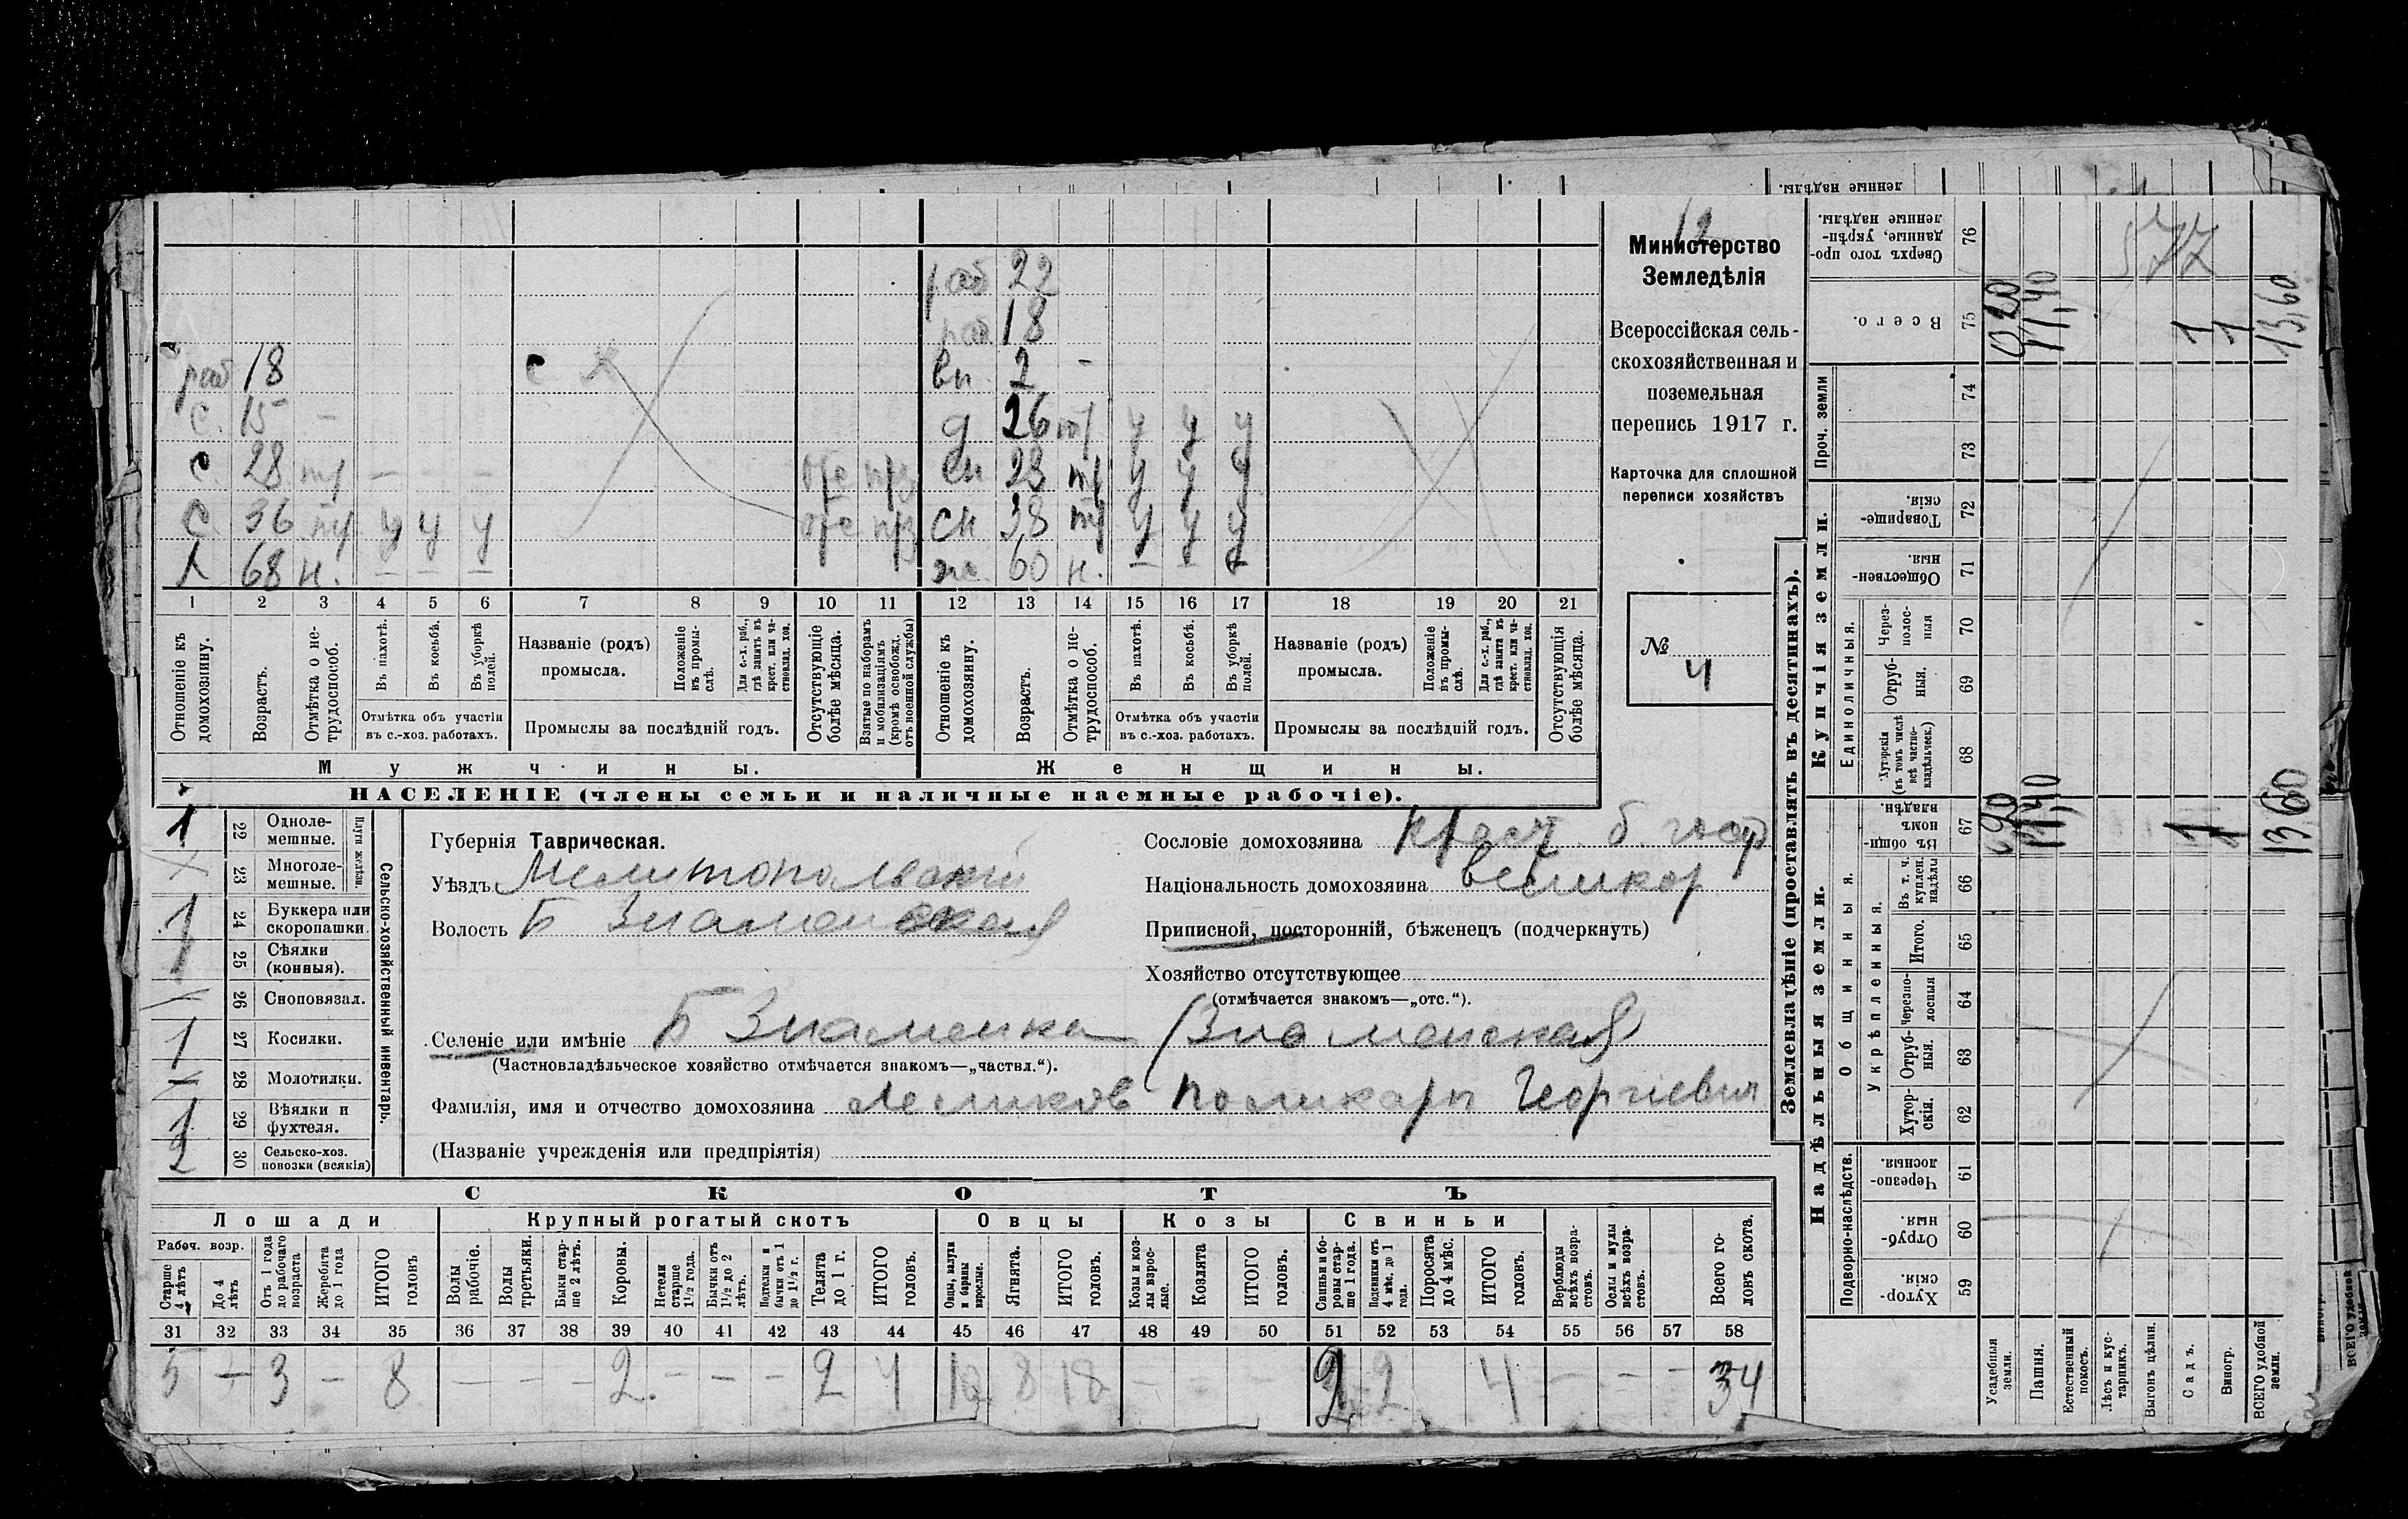 12
ленные надѣлы.
Министерство
Земледѣлія
Всероссійская сель-
скохозяйственная и
поземельная
перепись 1917 г.
Карточка для сплошной
переписи хозяйствъ
№ 4
раб 22
раб 18
раб 18 с вн. 2 –
с. 15 – д 26 тр у у у
с. 28 тр – – – сн 28 тр у у у
с. 36 тр у у у сн 38 тр у у у
х 68 н. – – – ж. 60 н. – – –
1 2 3 4 5 6 7 8 9 10 11 12 13 14 15 16 17 18 19 20 21
Отношеніе къ домохозяину.
Возрастъ.
Отмѣтка о не-трудоспособ.
Въ пахотѣ.
Въ косьбѣ.
Въ уборкѣ полей.
Отмѣтка объ участіи въ с.-хоз. работахъ.
Названіе (родъ) промысла.
Положеніе въ промы-слѣ.
Для с.-х. раб., гдѣ занятъ въ крест. или ча-стновлад. хоз.
Промыслы за послѣдній годъ.
Отсутствующіе болѣе мѣсяца.
Взятые по наборамъ и мобилизаціямъ (кромѣ освобожд. отъ военной службы)
Отношеніе къ домохозяину.
Возрастъ.
Отмѣтка о не-трудоспособ.
Въ пахотѣ.
Въ косьбѣ.
Въ уборкѣ полей.
Отмѣтка объ участіи въ с.-хоз. работахъ.
Названіе (родъ) промысла.
Положеніе въ промы-слѣ.
Для с.-х. раб., гдѣ занята въ крест. или ча-стновлад. хоз.
Промыслы за послѣдній годъ.
Отсутствующія болѣе мѣсяца.
Мужчины. Женщины.
НАСЕЛЕНІЕ (члены семьи и наличные наемные рабочіе).
Сельско-хозяйственный инвентарь.
Плуги желѣзн.
1 22 Одноле-мешные.
23 Многоле-мешные.
1 24 Буккера или скоропашки.
1 25 Сѣялки (конныя).
26 Сноповязал.
1 27 Косилки.
28 Молотилки.
1 29 Вѣялки и фухтеля.
2 30 Сельско-хоз. повозки (всякія)
Губернія Таврическая.
Уѣздъ Мелитопольскій
Волость Б Знаменская
Сословіе домохозяина крест. б. гос
Національность домохозяина великор
Приписной, посторонній, бѣженецъ (подчеркнуть)
Хозяйство отсутствующее
(отмѣчается знакомъ—„отс.“).
Селеніе или имѣніе Б Знаменка (Знаменская)
(Частновладѣльческое хозяйство отмѣчается знакомъ—„частвл.“).
Фамилія, имя и отчество домохозяина Леликов Поликарп Георгіевич
(Названіе учрежденія или предпріятія)
СКОТЪ
Лошади Крупный рогатый скотъ Овцы Козы Свиньи
Рабоч. возр.
Старше 4 лѣтъ
До 4 лѣтъ
Отъ 1 года до рабочаго возраста
Жеребята до 1 года
ИТОГО головъ
Волы рабочіе.
Волы третьяки.
Быки стар-ше 2 лѣтъ.
Коровы.
Нетели старше 1½ года.
Бычки отъ 1½ до 2 лѣтъ.
Подтелки и бычки отъ 1 до 1½ г.
Телята до 1 г.
ИТОГО головъ.
Овцы, валухи и бараны взрослые.
Ягнята.
ИТОГО головъ.
Козы и коз-лы взрос-лые.
Козлята
ИТОГО головъ.
Свиньи и бо-ровы стар-ше 1 года.
Подсвинки отъ 4 мѣс. до 1 года.
Поросята до 4 мѣс.
ИТОГО головъ.
Верблюды всѣхъ возра-стовъ.
Ослы и мулы всѣхъ возра-стовъ.
Всего го-ловъ скота.
31 32 33 34 35 36 37 38 39 40 41 42 43 44 45 46 47 48 49 50 51 52 53 54 55 56 57 58
5 – 3 – 8 – – – 2. – – – 2 4 10 8 18 – – – 2 2 4 – – – 34
Землевладѣніе (проставлять въ десятинахъ).
Надѣльныя земли. Купчія земли.
Подворно-наслѣдств.
Общинныя.
Укрѣпленныя.
Единоличныя.
Проч. земли
Хутор-скія. 59
Отруб-ныя. 60
Черезпо-лосныя. 61
Хутор-скія. 62
Отруб-ныя. 63
Черезпо-лосныя 64
Итого. 65
Въ т. ч. куплен. надѣлы 66
Въ общин-номъ владѣн. 67
Хуторскія (въ томъ числѣ всѣ частно-владѣльческ.) 68
Отруб-ныя. 69
Через-полос-ныя 70
Обществен-ныя. 71
Товарище-скія. 72
73
74
Всего. 75
Сверхъ того про-данные, укрѣп-ленные надѣлы. 76
577
Усадебныя земли.
Пашня. 11,40
Естественный покосъ.
Лѣсъ и кус-тарникъ.
Выгонъ цѣлин.
Садъ. 1 1
Виногр. 1
ВСЕГО удобной земли. 13,60 13,60